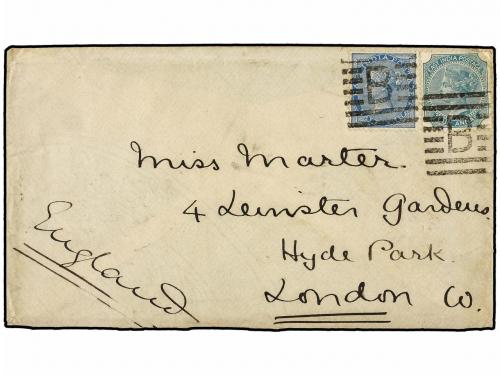 INDIA
EAST INDIA POSTAGE
B
B
Miss Marter.
4 Leinster Gardens.
Hyde Park.
London W.
England